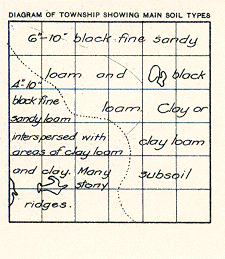 DIAGRAM OF TOWNSHIP SHOWING MAIN SOIL TYPES
6"-10" black fine sandy
loam and black
loam. Clay or
clay loam
subsoil
4"-10"
black fine
sandy loam
interspersed with
areas of clay loam
and clay. Many
stony
ridges.